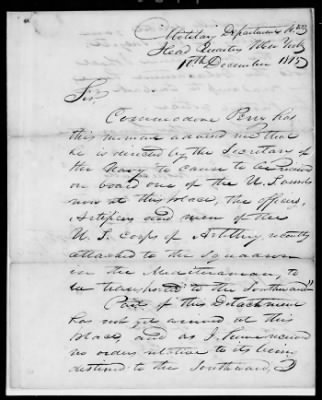 Military Department No. 3
Head Quarters New York
18th December 1815
Sir,
Commodore Perry has
this minute advised me that
he is directed by the Secretary of
the Navy to cause to be received
on board one of the U. S. vessels
now at this place, the officers,
Artificers and men of the
U. S. Corps of Artillery, recently
attached to the Squadron
in the Mediterranean, to
be transported to the Southward"
Part of this Detachment
has not yet arrived at this
place, and as I have received
no orders relative to its being
destined to the Southward, I